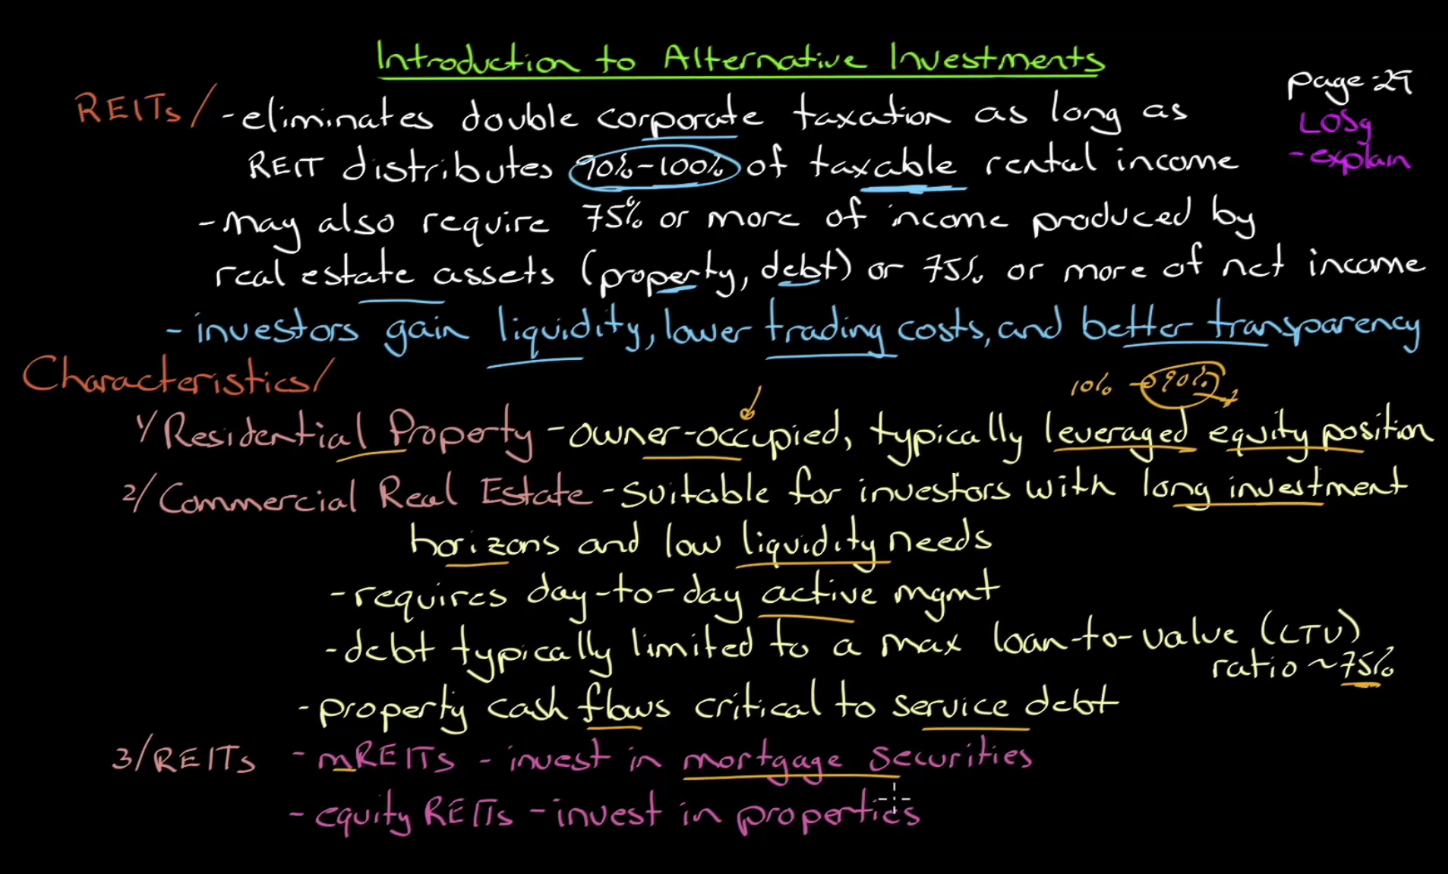 Introduction to Alternative Investments
page-29
LOSg
-explain
REITs/ -eliminates double corporate taxation as long as
REIT distributes 90%-100% of taxable rental income
-may also require 75% or more of income produced by
real estate assets (property, debt) or 75% or more of net income
-investors gain liquidity, lower trading costs, and better transparency
Characteristics/
10% → 90%
1/ Residential Property -owner-occupied, typically leveraged equity position
2/ Commercial Real Estate -suitable for investors with long investment
horizons and low liquidity needs
-requires day-to-day active mgmt
-debt typically limited to a max loan-to-value (LTV)
ratio ~75%
-property cash flows critical to service debt
3/ REITs - mREITs - invest in mortgage securities
- equity REITs - invest in properties